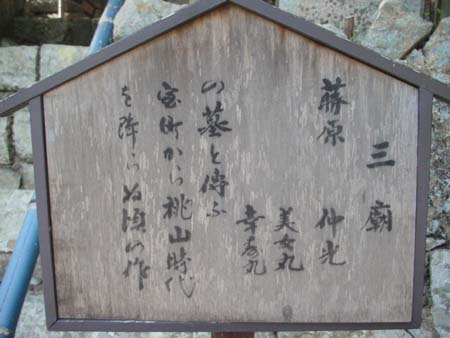 三廟
藤原 仲光
美女丸
幸寿丸
の墓と傳ふ
室町から桃山時代
を降らぬ頃の作